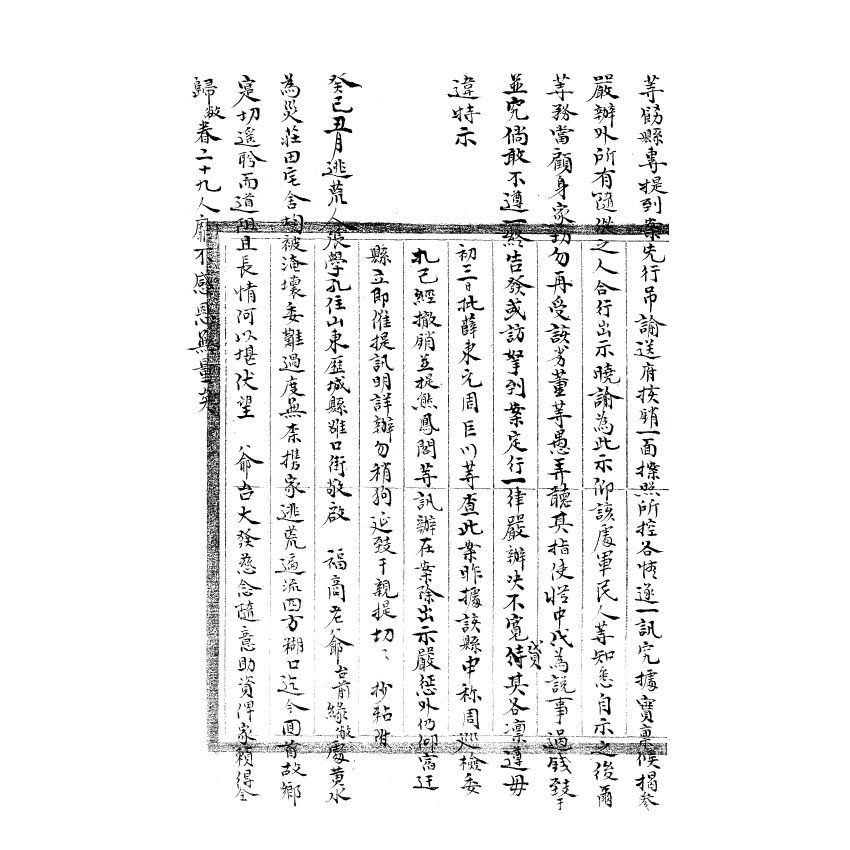 等飭縣專提到案先行吊諭送府按銷一面摽照所控各情逐一訊究據實稟候揭參
嚴辦外所有隨從之人合行出示曉諭為此示仰該處軍民人等知悉自示之後爾
等務當顧身家切勿再受該劣董等愚弄聽其指使慫中代為說事過錢致干
並究倘敢不遵一經告發或訪拏到案定行一律嚴辦决不寬貸待其各凛遵毋
違特示
初三日批薛東元周臣川等查此案昨據該縣申称周巡檢委
札已經撤銷並提熊鳳閣等訊辦在案除出示嚴懲外仍仰高迂
縣立即催提訊明詳辦勿稍狥延致干親提切〻 抄粘附
癸巳丑月逃荒人張學孔住山東歷城縣雒口街敬啟 福商老爺台前緣敝處黄水
為災莊田宅舍均被淹壞委難過度無柰携家逃荒遍流四方糊口迄今回首故鄉
寔切遙聆而道阻且長情何以堪伏望 爺台大發慈念隨意助資俾家賴得全
歸敝眷二十九人靡不感恩無量矣